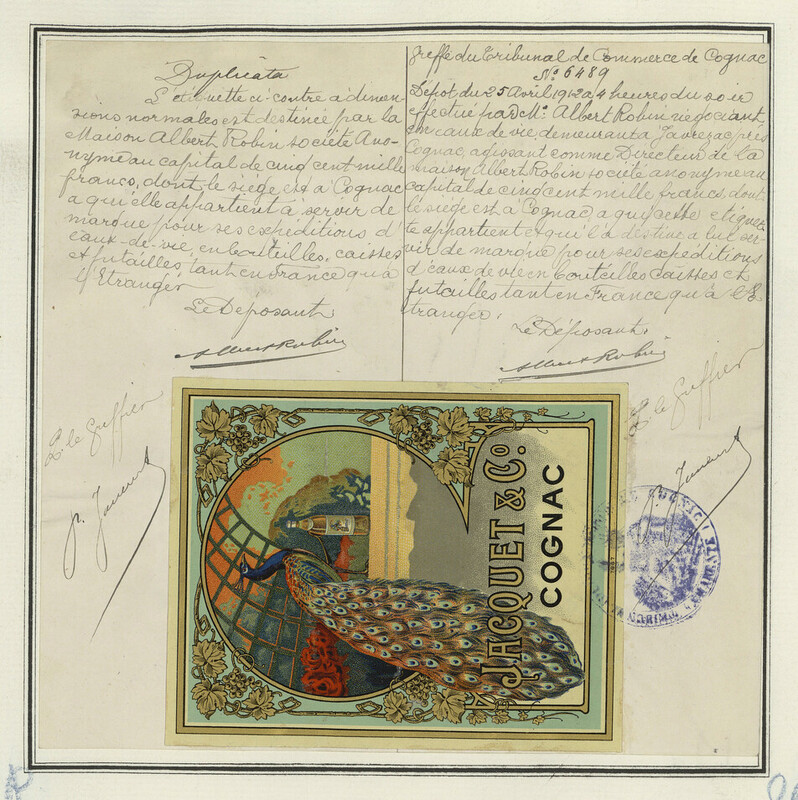 Duplicata
L'étiquette ci-contre à dimen-
sions normales est destinée par la
Maison Albert Robin société Ano-
nyme au capital de cinq cent mille
francs, dont le siège est à Cognac
a qui elle appartient à servir de
marque pour ses expéditions d'
eaux-de-vie, en bouteilles, caisses
et futailles, tant en France qu'à
l'Etranger
Le Déposant
Albert Robin
P. le Greffier
Greffe du Tribunal de Commerce de Cognac
No 6489
Dépôt du 25 Avril 1912 à 4 heures du soir
effectué par Mr. Albert Robin négociant
en eaux de vie, demeurant a Javrezac près
Cognac, agissant comme Directeur de la
maison Albert Robin société anonyme au
capital de cinq cent mille francs, dont
le siège est à Cognac, a qui cette etiquet-
te appartient et qui l'a destine a lui ser-
vir de marque pour ses expéditions
d'eaux de vie en bouteilles Caisses et
futailles tant en France qu'à l'E-
tranger.
Le Déposant.
Albert Robin
P. le Greffier
JACQUET & Co.
COGNAC